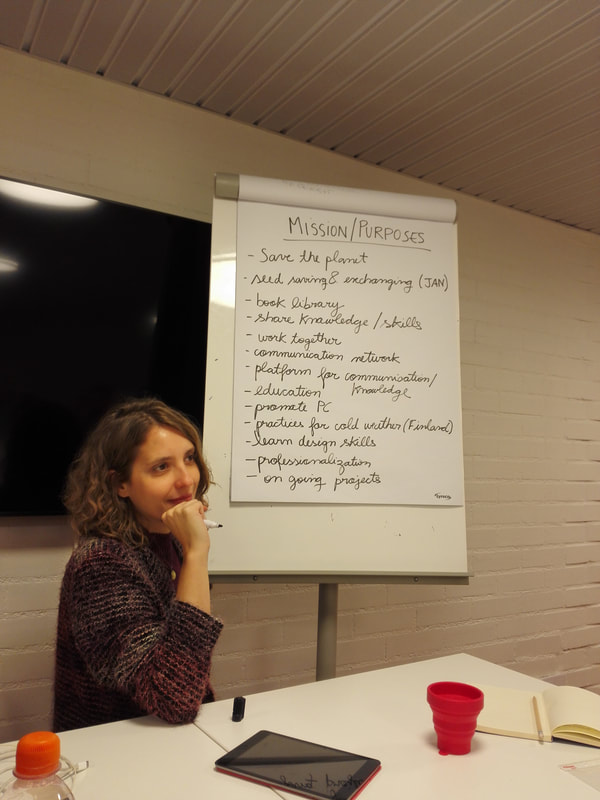 MISSION/PURPOSES
- Save the planet
- seed saving & exchanging (JAN)
- book library
- share knowledge / skills
- work together
- communication network
- platform for communication/
knowledge
- education
- promote PC
- practices for cold weather (Finland)
- learn design skills
- professionalization
- on going projects